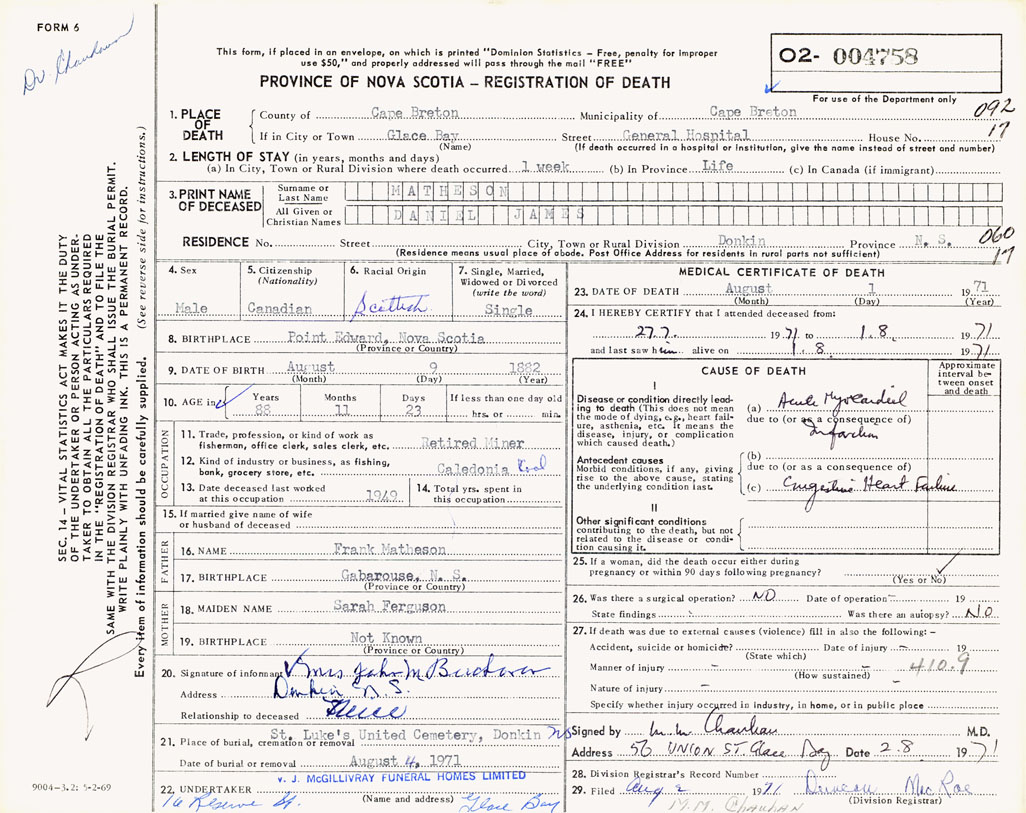 FORM 6
Dr. Chauhan
This form, if placed in an envelope, on which is printed "Dominion Statistics – Free, penalty for improper
use $50," and properly addressed will pass through the mail "FREE"
PROVINCE OF NOVA SCOTIA – REGISTRATION OF DEATH
02- 004758
For use of the Department only
1. PLACE OF DEATH
County of Cape Breton Municipality of Cape Breton 092
If in City or Town Glace Bay Street General Hospital House No. 17
(Name) (If death occurred in a hospital or institution, give the name instead of street and number)
2. LENGTH OF STAY (in years, months and days)
(a) In City, Town or Rural Division where death occurred 1 week (b) In Province Life (c) In Canada (if immigrant)
3. PRINT NAME OF DECEASED
Surname or Last Name MATHESON
All Given or Christian Names DANIEL JAMES
RESIDENCE No. Street City, Town or Rural Division Donkin Province N. S. 060
(Residence means usual place of abode. Post Office Address for residents in rural parts not sufficient) 17
4. Sex
Male
5. Citizenship (Nationality)
Canadian
6. Racial Origin
Scottish
7. Single, Married, Widowed or Divorced (write the word)
Single
8. BIRTHPLACE Point Edward, Nova Scotia
(Province or Country)
9. DATE OF BIRTH August 9 1882
(Month) (Day) (Year)
10. AGE in Years Months Days If less than one day old
88 11 23 hrs. or min.
OCCUPATION
11. Trade, profession, or kind of work as
fisherman, office clerk, sales clerk, etc. Retired Miner
12. Kind of industry or business, as fishing,
bank, grocery store, etc. Caledonia Coal
13. Date deceased last worked
at this occupation 1949
14. Total yrs. spent in
this occupation
15. If married give name of wife
or husband of deceased
FATHER
16. NAME Frank Matheson
17. BIRTHPLACE Gabarouse, N. S.
(Province or Country)
MOTHER
18. MAIDEN NAME Sarah Ferguson
19. BIRTHPLACE Not Known
(Province or Country)
20. Signature of informant Mrs John M Buchanan
Address Donkin N. S.
Relationship to deceased Niece
21. Place of burial, cremation or removal St. Luke's United Cemetery, Donkin NS
Date of burial or removal August 4, 1971
V. J. McGILLIVRAY FUNERAL HOMES LIMITED
22. UNDERTAKER
(Name and address)
16 Reserve St. Glace Bay
MEDICAL CERTIFICATE OF DEATH
23. DATE OF DEATH August 1 1971
(Month) (Day) (Year)
24. I HEREBY CERTIFY that I attended deceased from:
27.7. 1971 to 1.8. 1971
and last saw him alive on 1.8. 1971
CAUSE OF DEATH
Approximate interval between onset and death
I
Disease or condition directly leading to death (This does not mean the mode of dying, e.g., heart failure, asthenia, etc. It means the disease, injury, or complication which caused death.)
(a) Acute Myocardial
due to (or as a consequence of)
Infarction
Antecedent causes
Morbid conditions, if any, giving rise to the above cause, stating the underlying condition last.
(b)
due to (or as a consequence of)
(c) Congestive Heart Failure
II
Other significant conditions
contributing to the death, but not related to the disease or condition causing it.
25. If a woman, did the death occur either during
pregnancy or within 90 days following pregnancy?
(Yes or No)
26. Was there a surgical operation? NO Date of operation – 19
State findings Was there an autopsy? NO
27. If death was due to external causes (violence) fill in also the following: –
Accident, suicide or homicide? Date of injury – 19
(State which)
Manner of injury – – 410.9
(How sustained)
Nature of injury –
Specify whether injury occurred in industry, in home, or in public place
Signed by M. M. Chauhan M.D.
Address 56 UNION ST. Glace Bay Date 2.8 1971
28. Division Registrar's Record Number
29. Filed Aug 2 1971 Duncan MacRae
(Division Registrar)
M.M. CHAUHAN
SEC. 14 – VITAL STATISTICS ACT MAKES IT THE DUTY
OF THE UNDERTAKER OR PERSON ACTING AS UNDER-
TAKER TO OBTAIN ALL THE PARTICULARS REQUIRED
IN THE "REGISTRATION OF DEATH" AND TO FILE THE
SAME WITH THE DIVISION REGISTRAR WHO SHALL ISSUE THE BURIAL PERMIT.
WRITE PLAINLY WITH UNFADING INK. THIS IS A PERMANENT RECORD.
Every item of information should be carefully supplied. (See reverse side for instructions.)
9004–3.2: 5-2-69